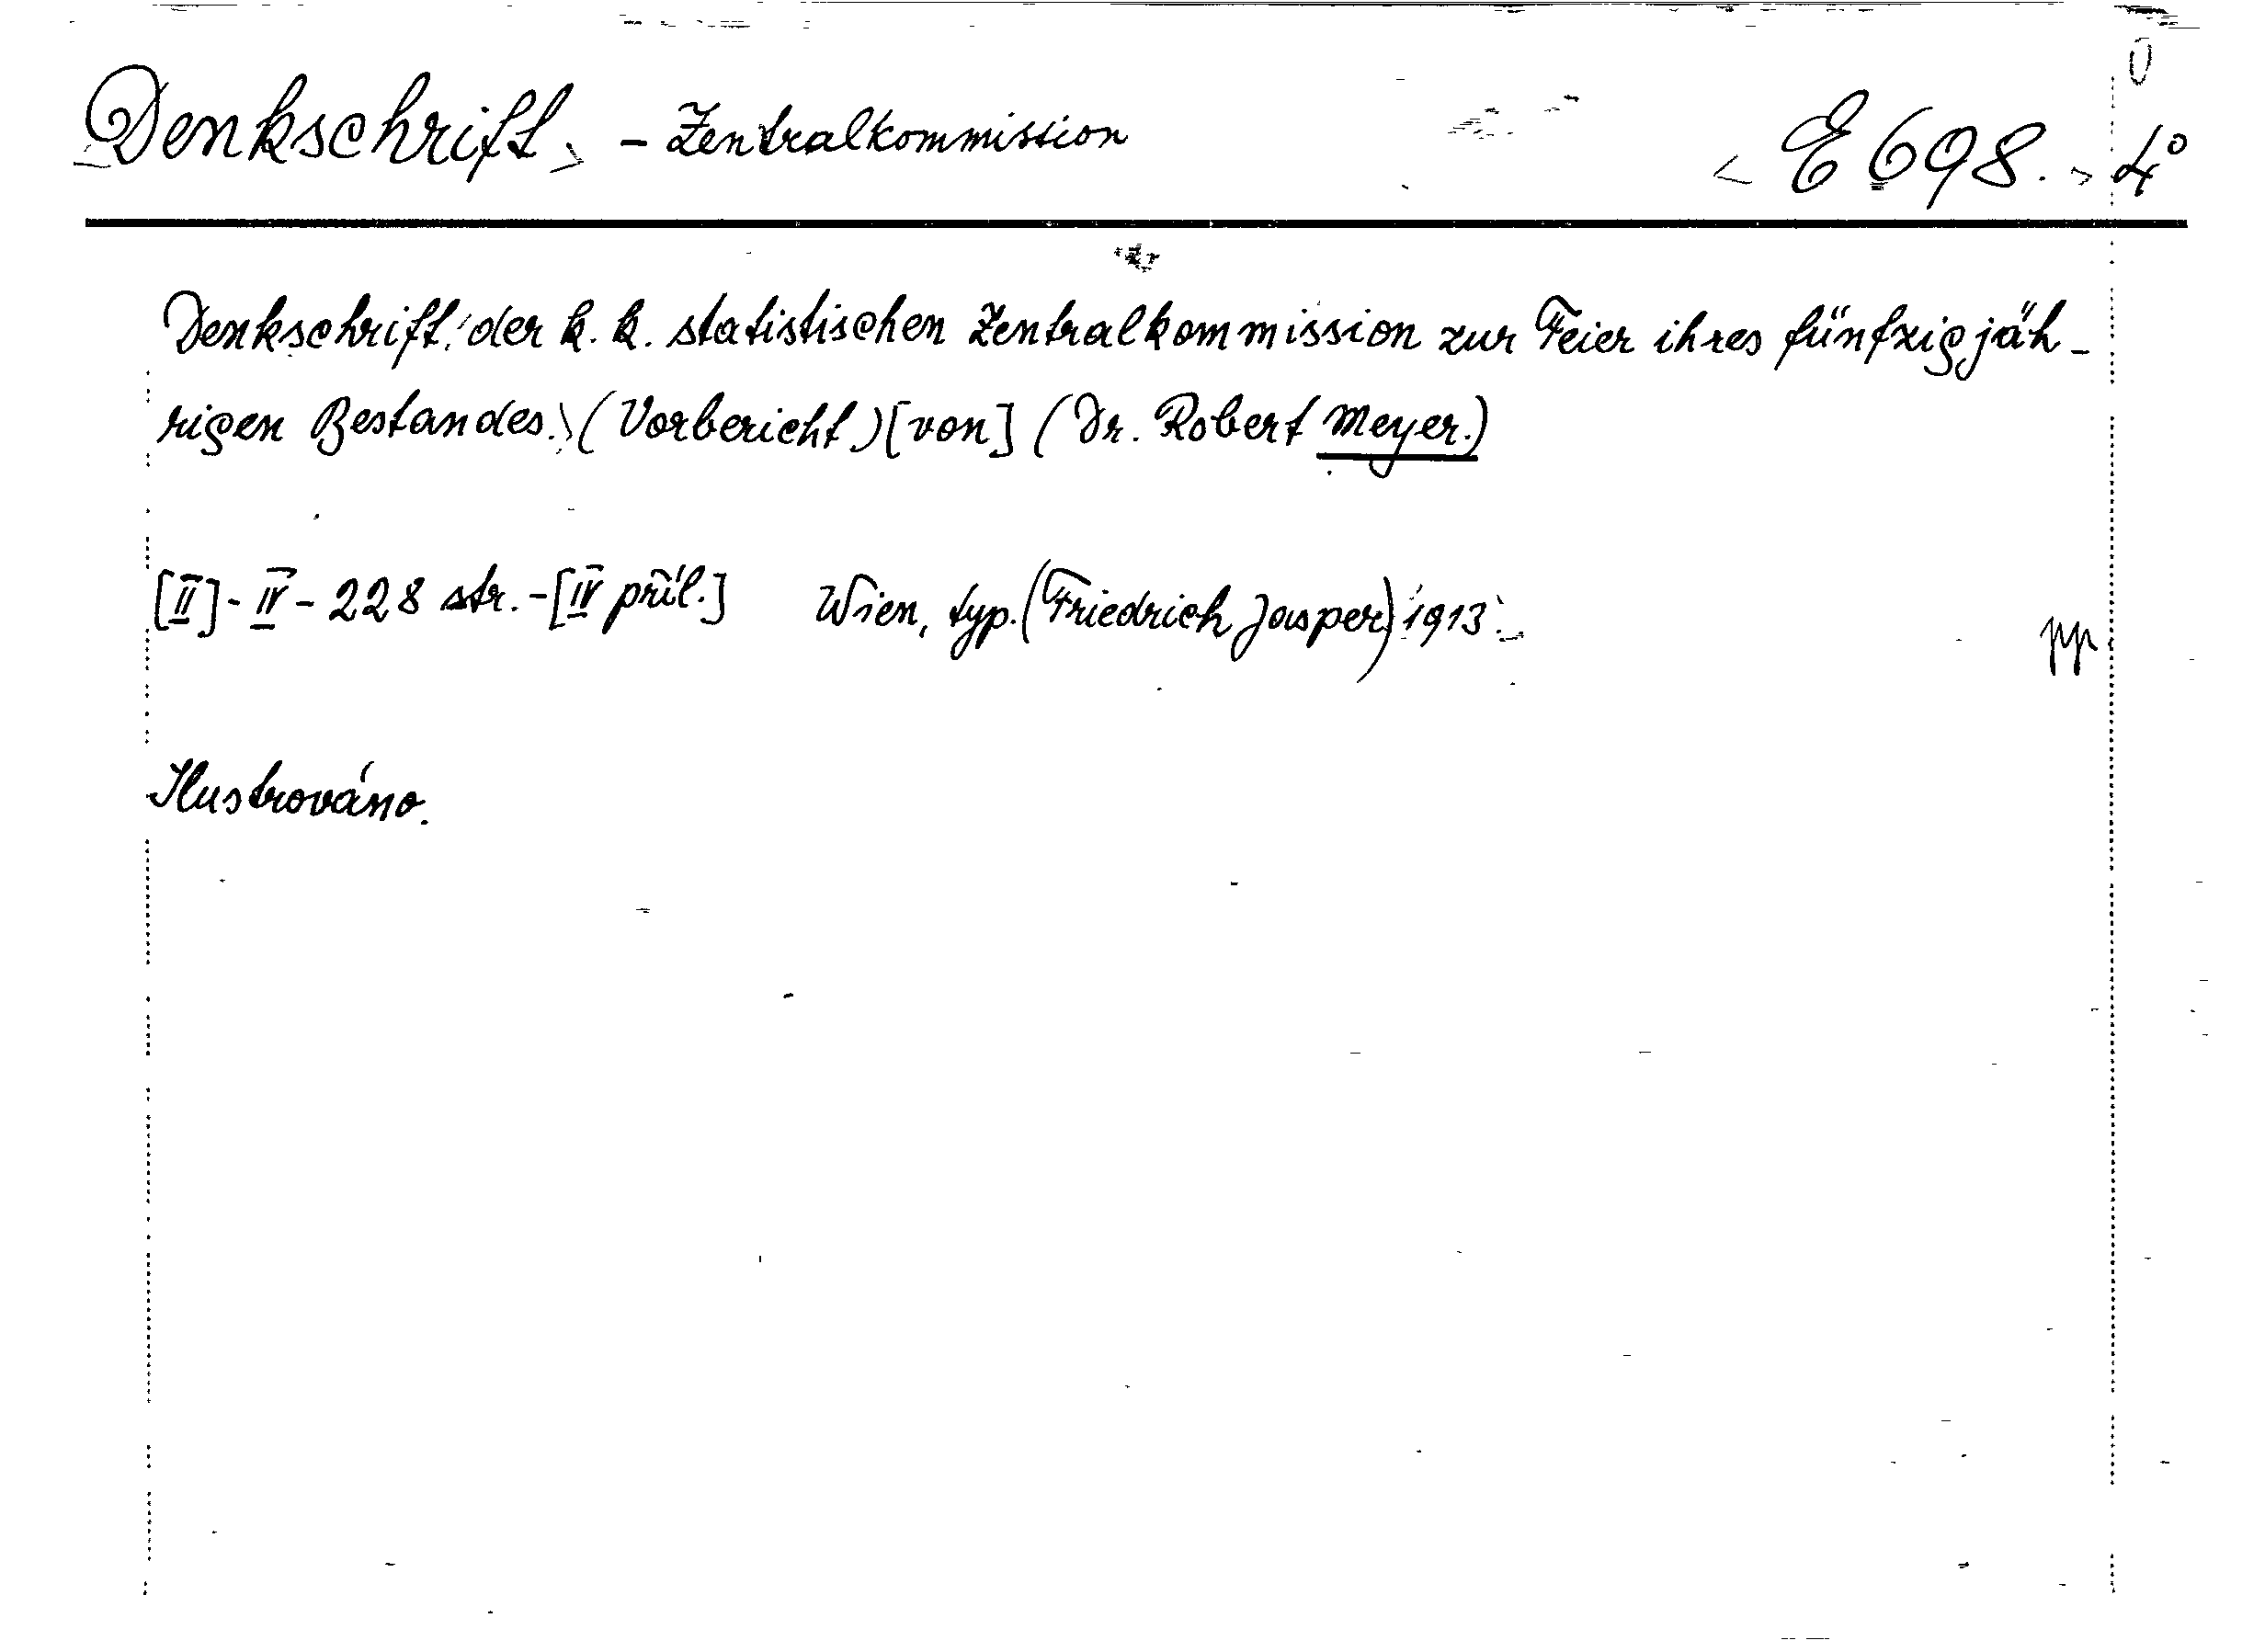 Denkschrift - Zentralkommission E 698. 4°
Denkschrift der k. k. statistischen Zentralkommission zur Feier ihres fünfzigjäh-
rigen Bestandes. (Vorbericht) [von] (Dr. Robert Meyer.)
[II] - IV - 228 str. - [IV příl.] Wien, typ. (Friedrich Jasper) 1913.
Ilustrováno.